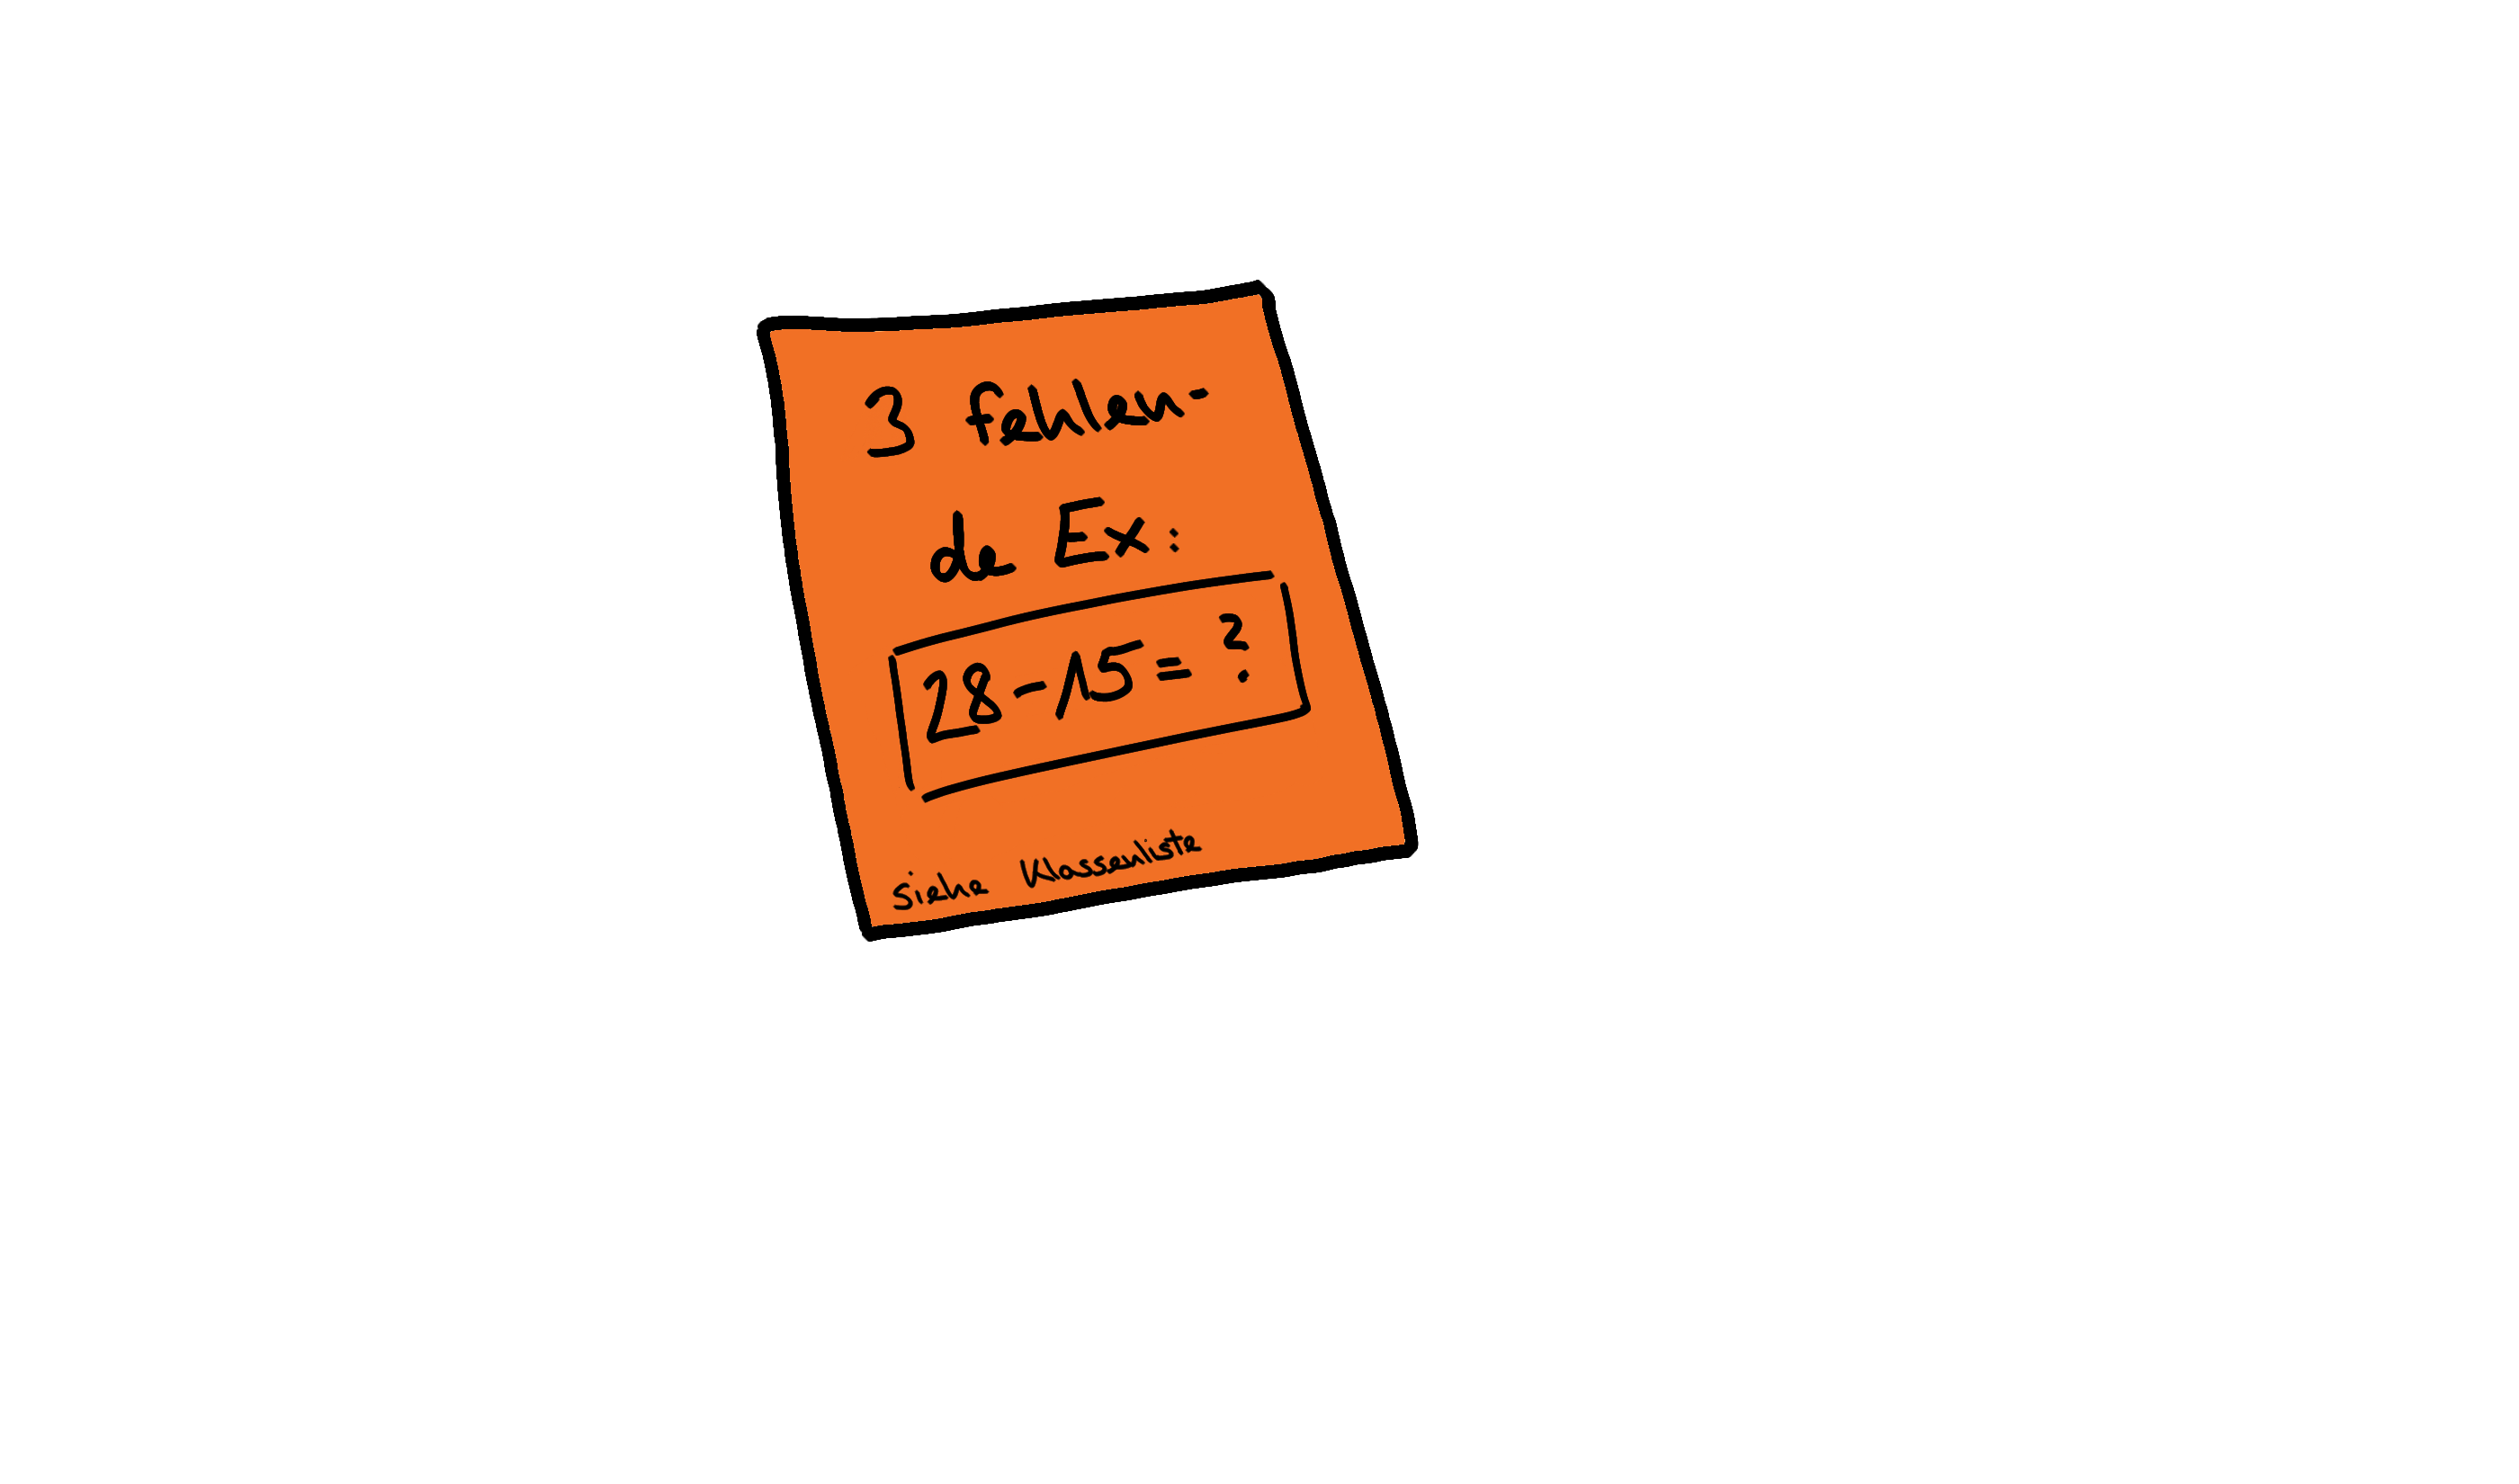 3 fehlen-
de Ex:
28-15=?
siehe Klassenliste